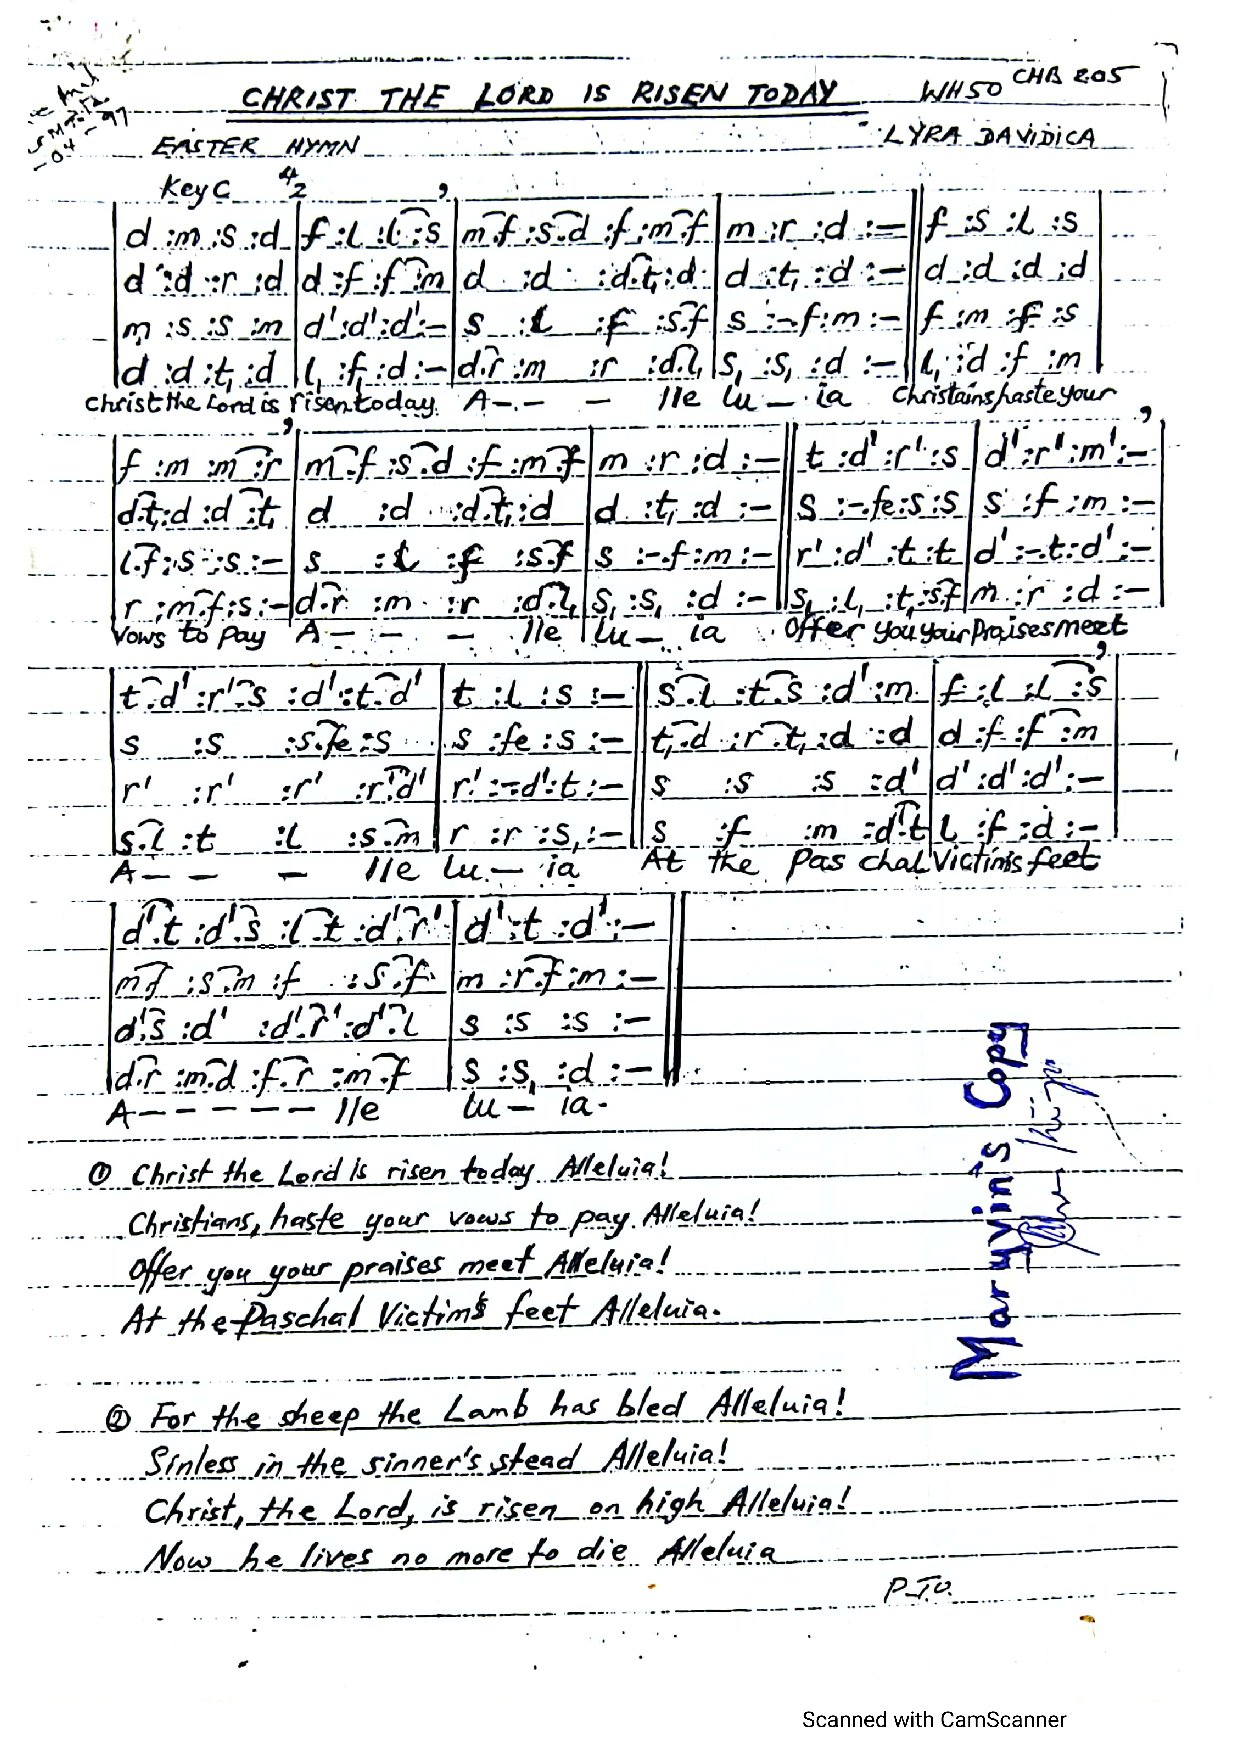 CHRIST THE LORD IS RISEN TODAY WH50 CHB 205
EASTER HYMN LYRA DAVIDICA
Key C 4/2
d :m :s :d | f :l :l.s | m.f :s.d :f :m.f | m :r :d :– || f :s :l :s |
d :d :r :d | d :f :f.m | d :d :d.t, :d | d :t, :d :– || d :d :d :d
m :s :s :m | d' :d' :d' :– | s :l :f :s.f | s :-.f :m :– || f :m :f :s
d :d :t, :d | l, :f, :d :– | d.r :m :r :d.l, | s, :s, :d :– || l, :d :f :m
Christ the Lord is risen today A – – – lle lu – ia Christains haste your
f :m :m.r | m.f :s.d :f :m.f | m :r :d :– || t :d' :r' :s | d' :r' :m' :–
d.t, :d :d.t, | d :d :d.t, :d | d :t, :d :– || s :-.fe :s :s | s :f :m :–
l.f :s :s :– | s :l :f :s.f | s :-.f :m :– || r' :d' :t :t | d' :-.t :d' :–
r :m.f :s :– | d.r :m :r :d.l, | s, :s, :d :– || s, :l, :t, :s.f | m :r :d :–
Vows to pay A – – – lle lu – ia Offer you your Praises meet
t.d' :r'.s :d' :t.d' | t :l :s :– || s.l :t.s :d' :m | f :l :l.s
s :s :s.fe :s | s :fe :s :– || t,.d :r.t, :d :d | d :f :f.m
r' :r' :r' :r'.d' | r' :-.d' :t :– || s :s :s :d' | d' :d' :d' :–
s.l :t :l :s.m | r :r :s, :– || s :f :m :d'.t | l :f :d :–
A – – – lle lu – ia At the Pas chal Victim's feet
d'.t :d'.s :l.t :d'.r' | d' :t :d' :– ||
m.f :s.m :f :s.f | m :r.f :m :–
d'.s :d' :d'.r' :d'.l | s :s :s :–
d.r :m.d :f.r :m.f | s :s, :d :– ||
A – – – – – lle lu – ia.
① Christ the Lord is risen today Alleluia!
Christians, haste your vows to pay Alleluia!
Offer you your praises meet Alleluia!
At the Paschal Victim's feet Alleluia.
② For the sheep the Lamb has bled Alleluia!
Sinless in the sinner's stead Alleluia!
Christ, the Lord, is risen on high Alleluia!
Now he lives no more to die Alleluia
P.T.O.
Maruyvin's Copy
Scanned with CamScanner